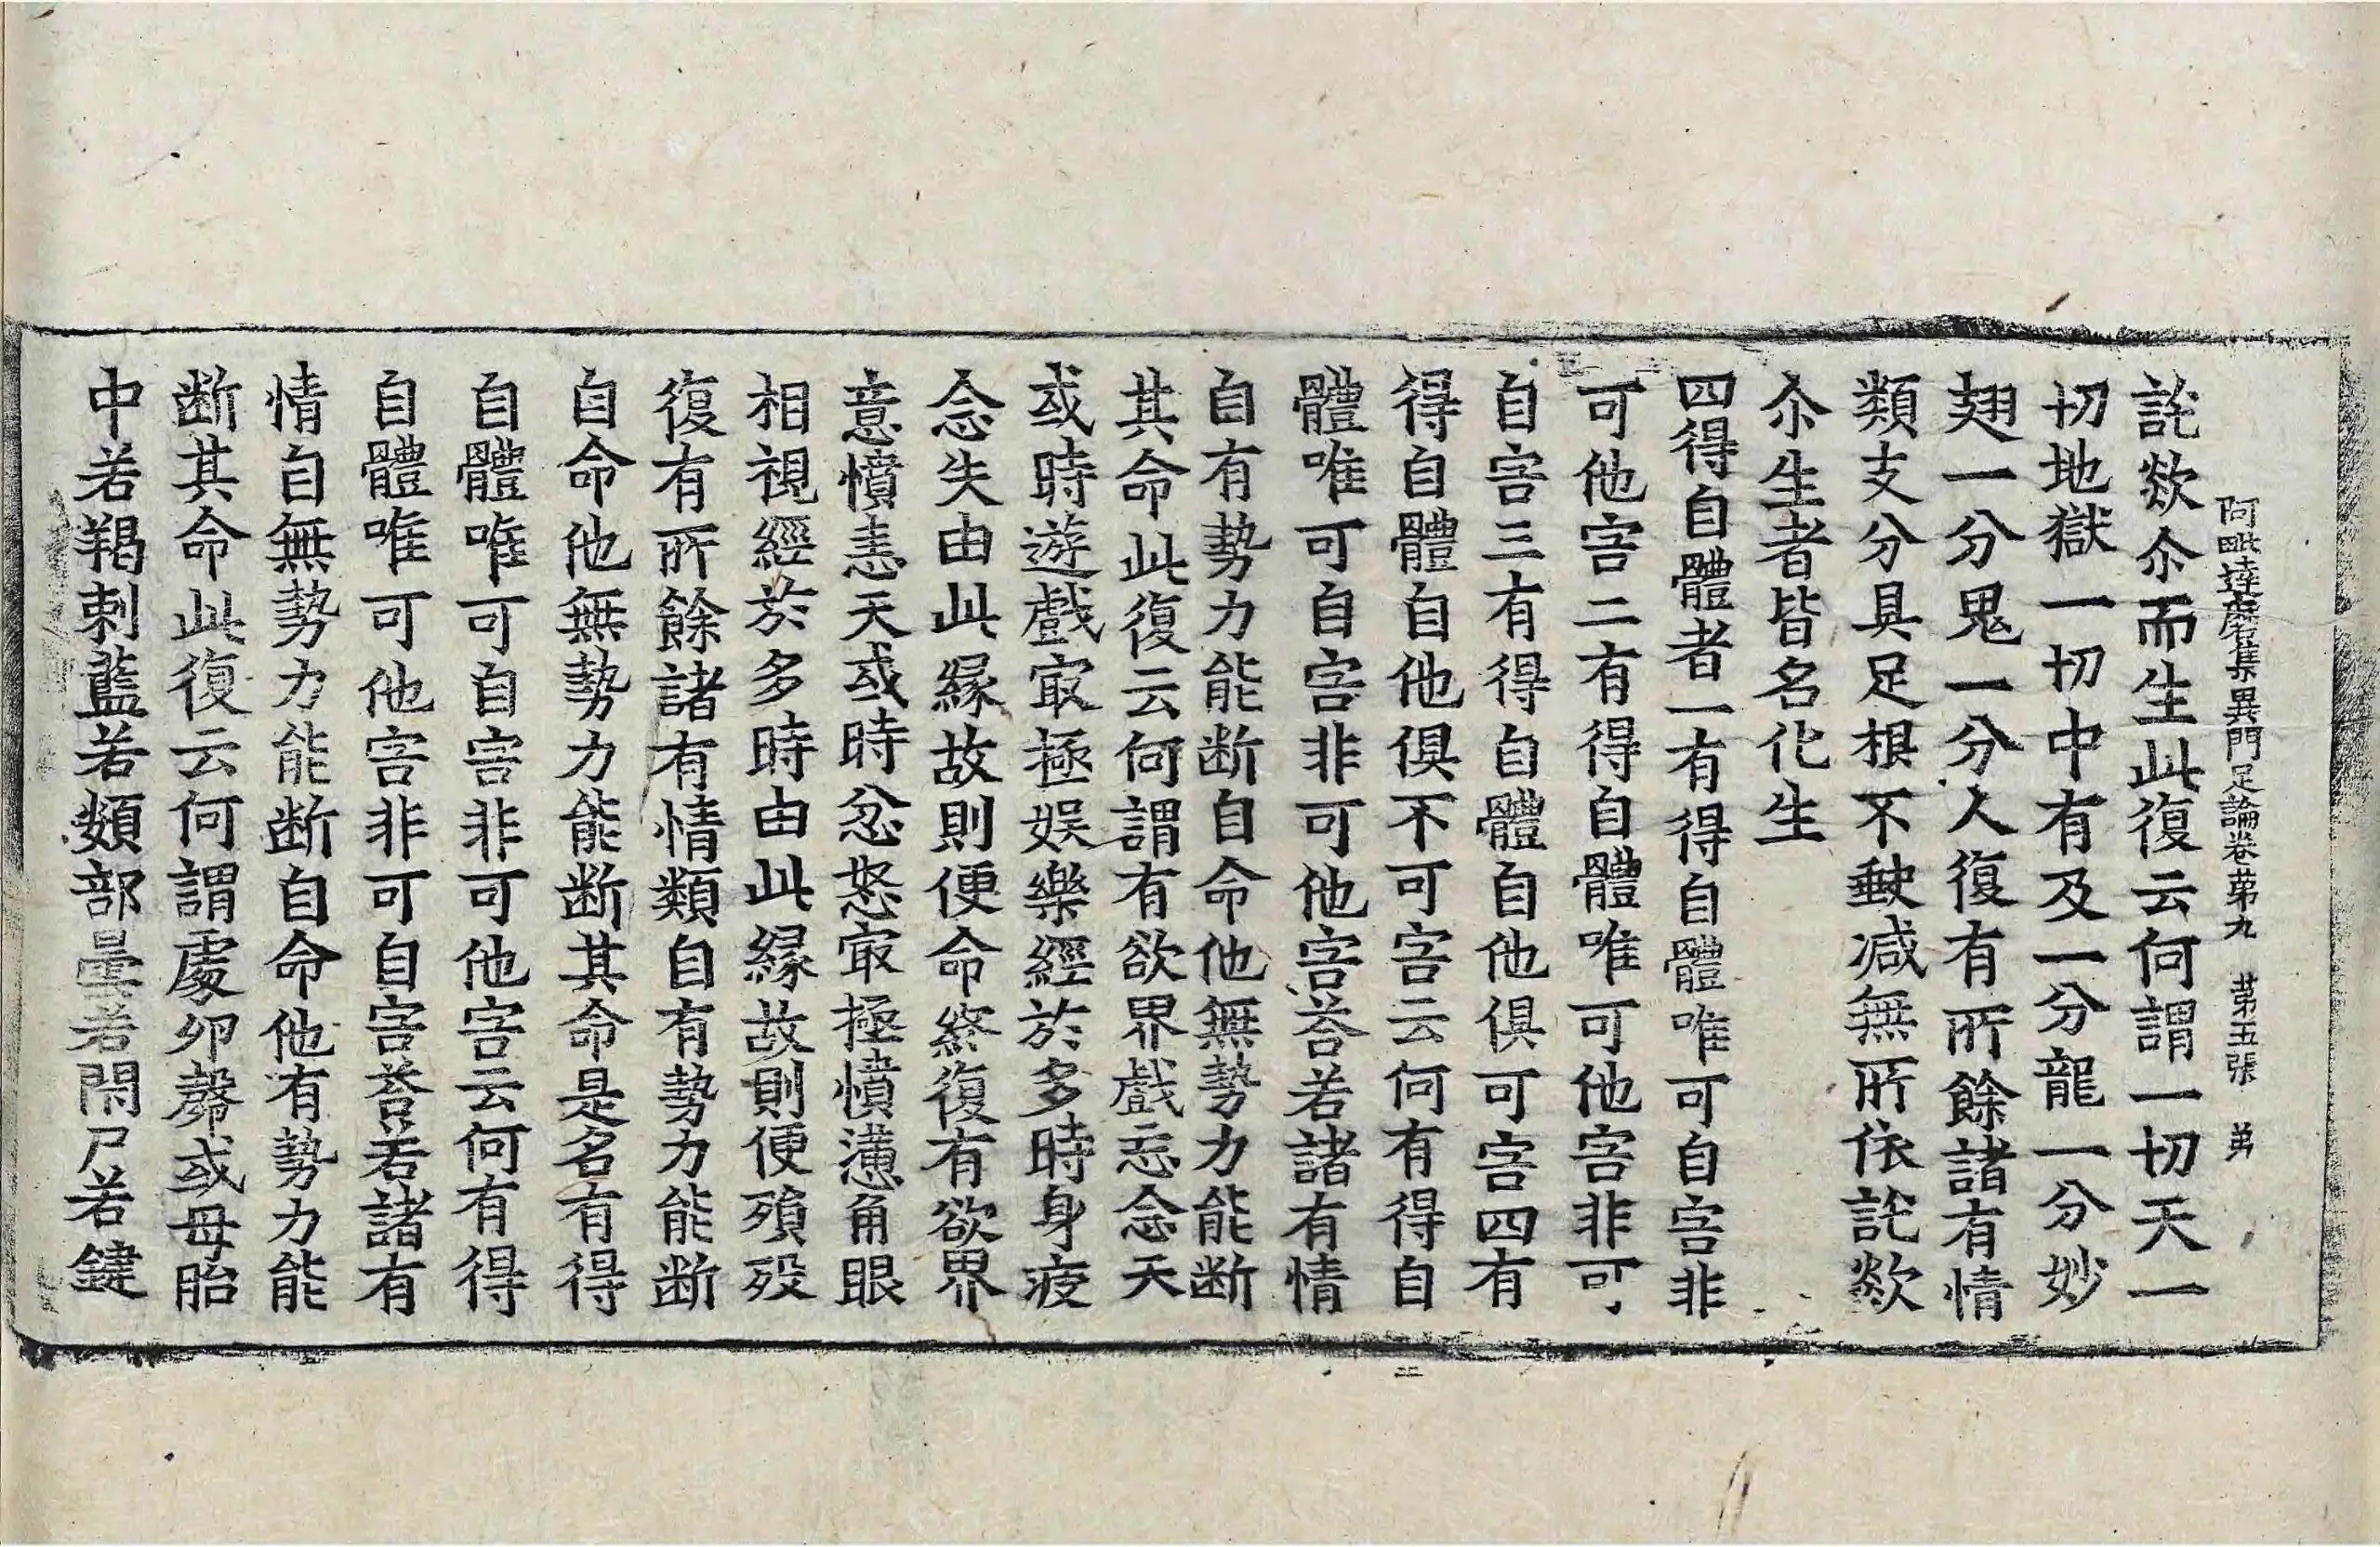 阿毗達磨集異門足論卷第九　第五張　弟
託欻尒而生此復云何謂一切天一
切地獄一切中有及一分龍一分妙
翅一分鬼一分人復有所餘諸有情
類支分具足根不𡙇減無所依託欻
尒生者皆名化生
四得自體者一有得自體唯可自害非
可他害二有得自體唯可他害非可
自害三有得自體自他俱可害四有
得自體自他俱不可害云何有得自
體唯可自害非可他害荅若諸有情
自有勢力能断自命他無勢力能断
其命此復云何謂有欲界戲忘念天
或時遊戲㝡極娛樂經於多時身疲
念失由此緣故則便命終復有欲界
意憤恚天或時忿怒㝡極憤懣角眼
相視經於多時由此緣故則便殞歿
復有所餘諸有情類自有勢力能断
自命他無勢力能断其命是名有得
自體唯可自害非可他害云何有得
自體唯可他害非可自害荅若諸有
情自無勢力能断自命他有勢力能
断其命此復云何謂處卵㲉或母胎
中若羯剌藍若頞部曇若閇尸若鍵